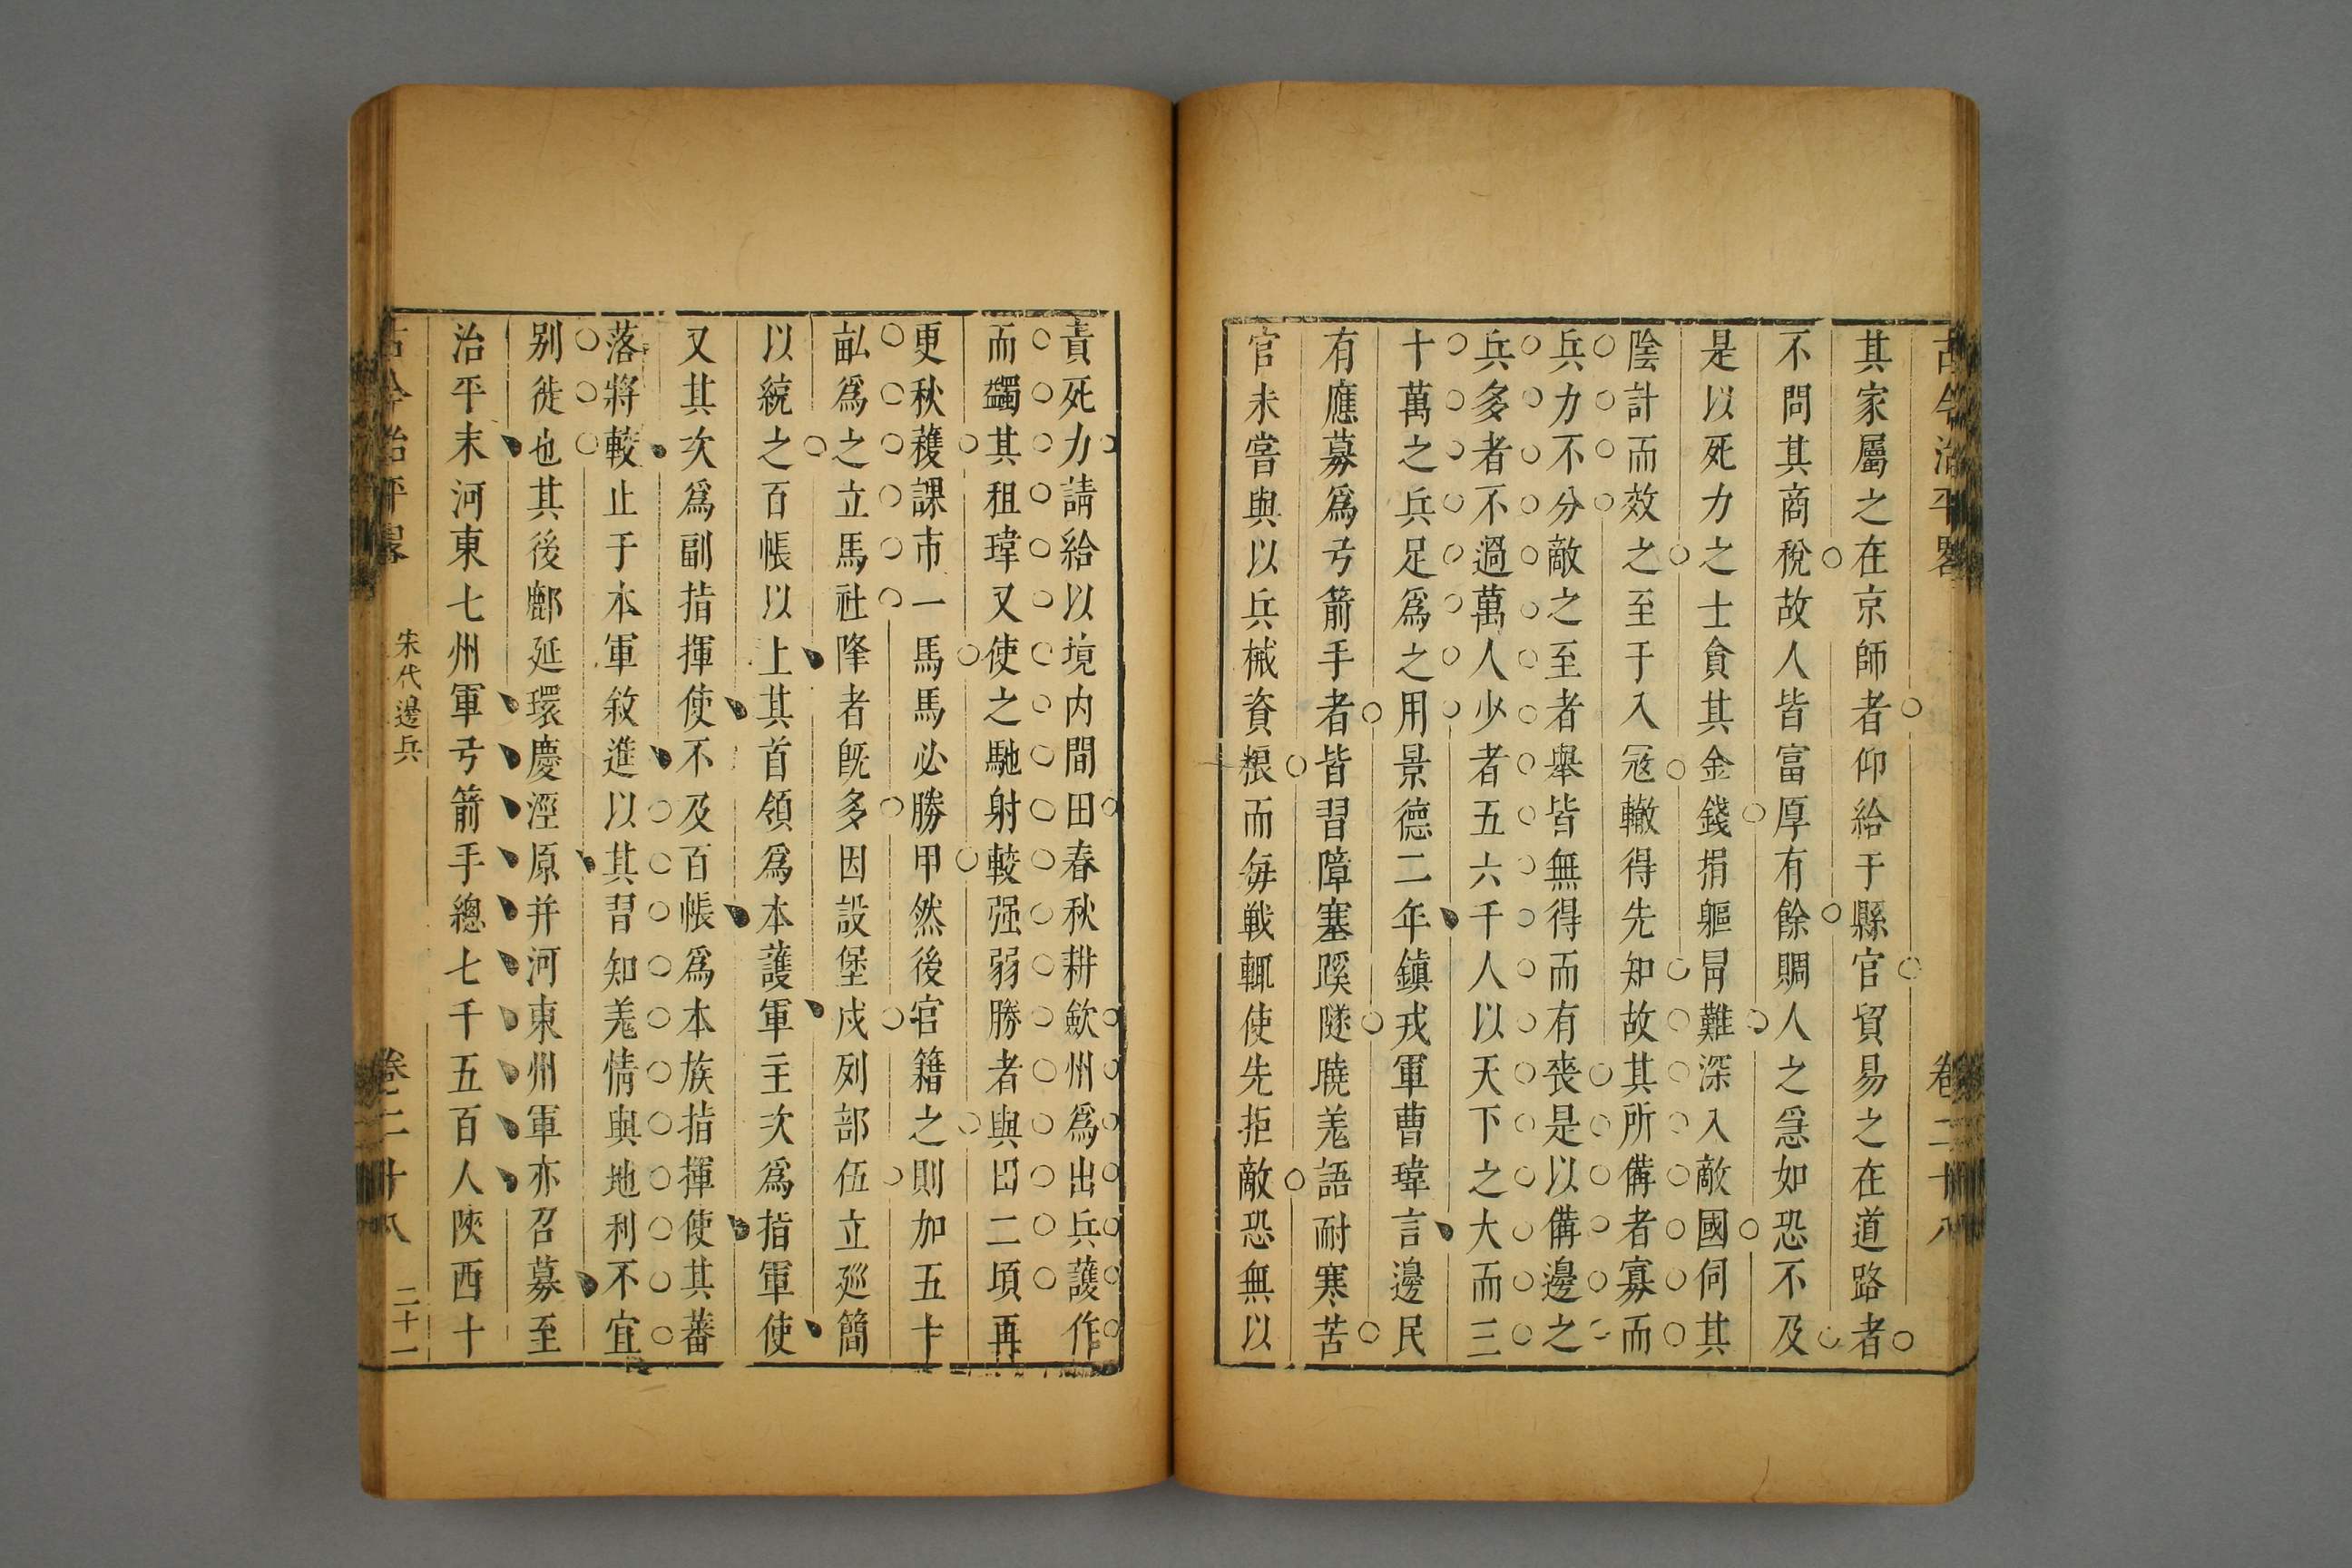 古今治平畧 卷二十八
其家屬之在京師者仰給于縣官貿易之在道路者
不問其商稅故人皆富厚有餘賙人之急如恐不及
是以死力之士貪其金錢捐軀冐難深入敵國伺其
陰計而效之至于入冦輙得先知故其所偹者寡而
兵力不分敵之至者舉皆無得而有喪是以偹邊之
兵多者不過萬人少者五六千人以天下之大而三
十萬之兵足爲之用景德二年鎮戎軍曹瑋言邊民
有應募爲弓箭手者皆習障塞蹊隧曉羗語耐寒苦
官未嘗與以兵械資粮而每戰輒使先拒敵恐無以
責死力請給以境内間田春秋耕歛州爲出兵護作
而蠲其租瑋又使之馳射較强弱勝者與田二頃再
更秋穫課市一馬馬必勝甲然後官籍之則加五十
畆爲之立馬社降者旣多因設堡戍列部伍立廵簡
以統之百帳以上其首領爲本護軍主次爲指軍使
又其次爲副指揮使不及百帳爲本族指揮使其蕃
落將較止于本軍敘進以其習知羗情與地利不宜
别徙也其後鄜延環慶涇原并河東州軍亦召募至
治平末河東七州軍弓箭手總七千五百人陝西十
古今治平畧 宋代邊兵 卷二十八 二十一